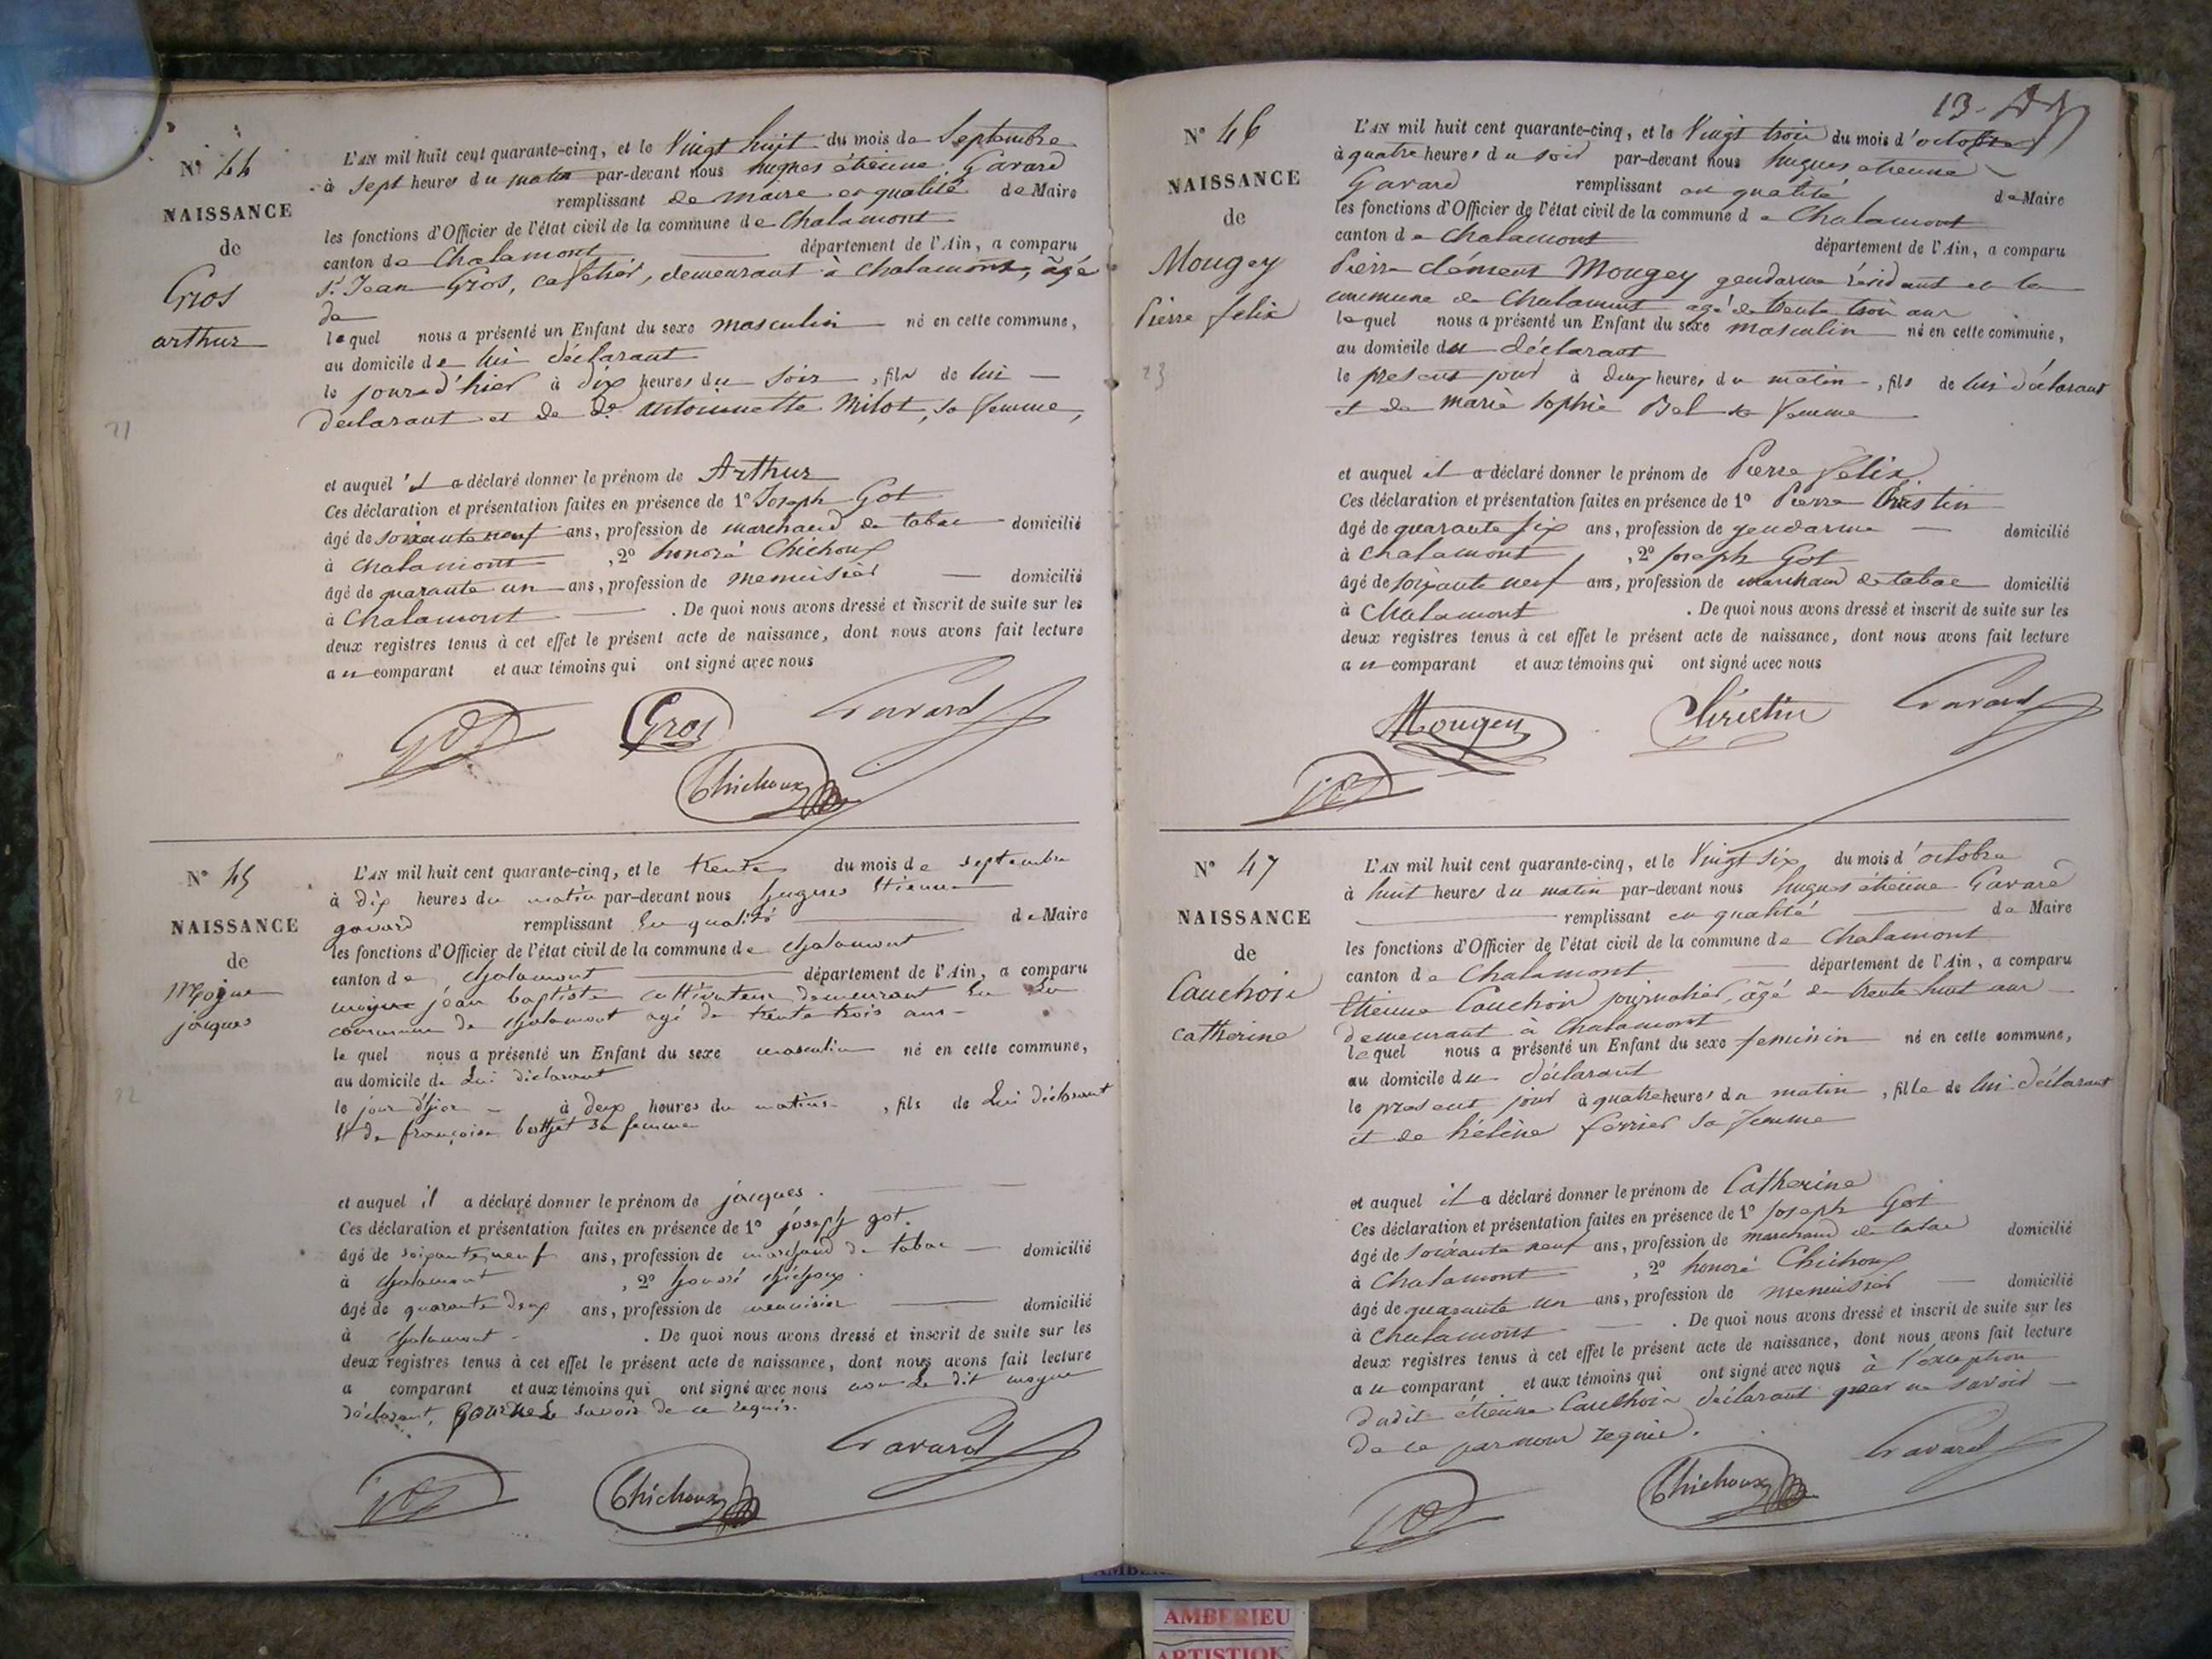 N° 44
NAISSANCE
de
Gros
arthur
21
L'AN mil huit cent quarante-cinq, et le Vingt huit du mois de Septembre
à sept heures du matin par-devant nous hugues étienne Gavard
remplissant de maire en qualité de Maire
les fonctions d'Officier de l'état civil de la commune de Chalamont
canton de Chalamont département de l'Ain, a comparu
Sr Jean Gros, cafetier, demeurant à Chalamont, âgé
de
lequel nous a présenté un Enfant du sexe masculin né en cette commune,
au domicile de lui déclarant
le jour d'hier à dix heures du soir, fils de lui
déclarant et de de antoinette Milot, sa femme,
et auquel il a déclaré donner le prénom de Arthur
Ces déclaration et présentation faites en présence de 1° Joseph Got
âgé de soixante neuf ans, profession de marchand de tabac domicilié
à Chalamont, 2° honoré Chichoux
âgé de quarante un ans, profession de menuisier domicilié
à Chalamont. De quoi nous avons dressé et inscrit de suite sur les
deux registres tenus à cet effet le présent acte de naissance, dont nous avons fait lecture
au comparant et aux témoins qui ont signé avec nous
Got Gros Gavard
Chichoux
N° 45
NAISSANCE
de
Moyne
jacques
22
L'AN mil huit cent quarante-cinq, et le trente du mois de septembre
à dix heures du matin par-devant nous hugues étienne
gavard remplissant en qualité de Maire
les fonctions d'Officier de l'état civil de la commune de chalamont
canton de chalamont département de l'Ain, a comparu
moyne jean baptiste cultivateur demeurant en la
commune de chalamont agé de trente trois ans
lequel nous a présenté un Enfant du sexe masculin né en cette commune,
au domicile de lui déclarant
le jour d'hier à deux heures du matin, fils de lui déclarant
et de françoise sa femme
et auquel il a déclaré donner le prénom de jacques.
Ces déclaration et présentation faites en présence de 1° joseph got.
âgé de soixante neuf ans, profession de marchand de tabac domicilié
à chalamont, 2° honoré chichoux.
âgé de quarante deux ans, profession de menuisier domicilié
à chalamont. De quoi nous avons dressé et inscrit de suite sur les
deux registres tenus à cet effet le présent acte de naissance, dont nous avons fait lecture
a comparant et aux témoins qui ont signé avec nous non le dit moyne
déclarant, pour ne le savoir de ce requis.
Got Chichoux Gavard
13
N° 46
NAISSANCE
de
Mougey
Pierre felix
23
L'AN mil huit cent quarante-cinq, et le Vingt trois du mois d'octobre
à quatre heures du soir par-devant nous hugues etienne
Gavard remplissant en qualité de Maire
les fonctions d'Officier de l'état civil de la commune de Chalamont
canton de Chalamont département de l'Ain, a comparu
Pierre clément Mougey gendarme résidant en la
commune de Chalamont agé de trente trois ans
lequel nous a présenté un Enfant du sexe masculin né en cette commune,
au domicile du déclarant
le présent jour à deux heures du matin, fils de lui déclarant
et de marie sophie Bel sa femme
et auquel il a déclaré donner le prénom de Pierre félix
Ces déclaration et présentation faites en présence de 1° Pierre Christin
âgé de quarante six ans, profession de gendarme domicilié
à Chalamont, 2° Joseph Got
âgé de soixante neuf ans, profession de marchand de tabac domicilié
à Chalamont. De quoi nous avons dressé et inscrit de suite sur les
deux registres tenus à cet effet le présent acte de naissance, dont nous avons fait lecture
au comparant et aux témoins qui ont signé avec nous
Mougey Christin Gavard
Got
N° 47
NAISSANCE
de
Cauchoix
catherine
L'AN mil huit cent quarante-cinq, et le Vingt six du mois d'octobre
à huit heures du matin par-devant nous hugues étienne Gavard
remplissant en qualité de Maire
les fonctions d'Officier de l'état civil de la commune de Chalamont
canton de Chalamont département de l'Ain, a comparu
Etienne Cauchoix journalier, âgé de trente huit ans
demeurant à Chalamont
lequel nous a présenté un Enfant du sexe feminin né en cette commune,
au domicile du déclarant
le présent jour à quatre heures du matin, fille de lui déclarant
et de hélène ferrier sa femme
et auquel il a déclaré donner le prénom de Catherine
Ces déclaration et présentation faites en présence de 1° Joseph Got
âgé de soixante neuf ans, profession de marchand de tabac domicilié
à Chalamont, 2° honoré Chichoux
âgé de quarante un ans, profession de menuisier domicilié
à Chalamont. De quoi nous avons dressé et inscrit de suite sur les
deux registres tenus à cet effet le présent acte de naissance, dont nous avons fait lecture
au comparant et aux témoins qui ont signé avec nous à l'exception
dudit étienne Cauchoix déclarant pour ne savoir
de ce par nous requis.
Got Chichoux Gavard
AMBERIEU
ARTISTIQUE